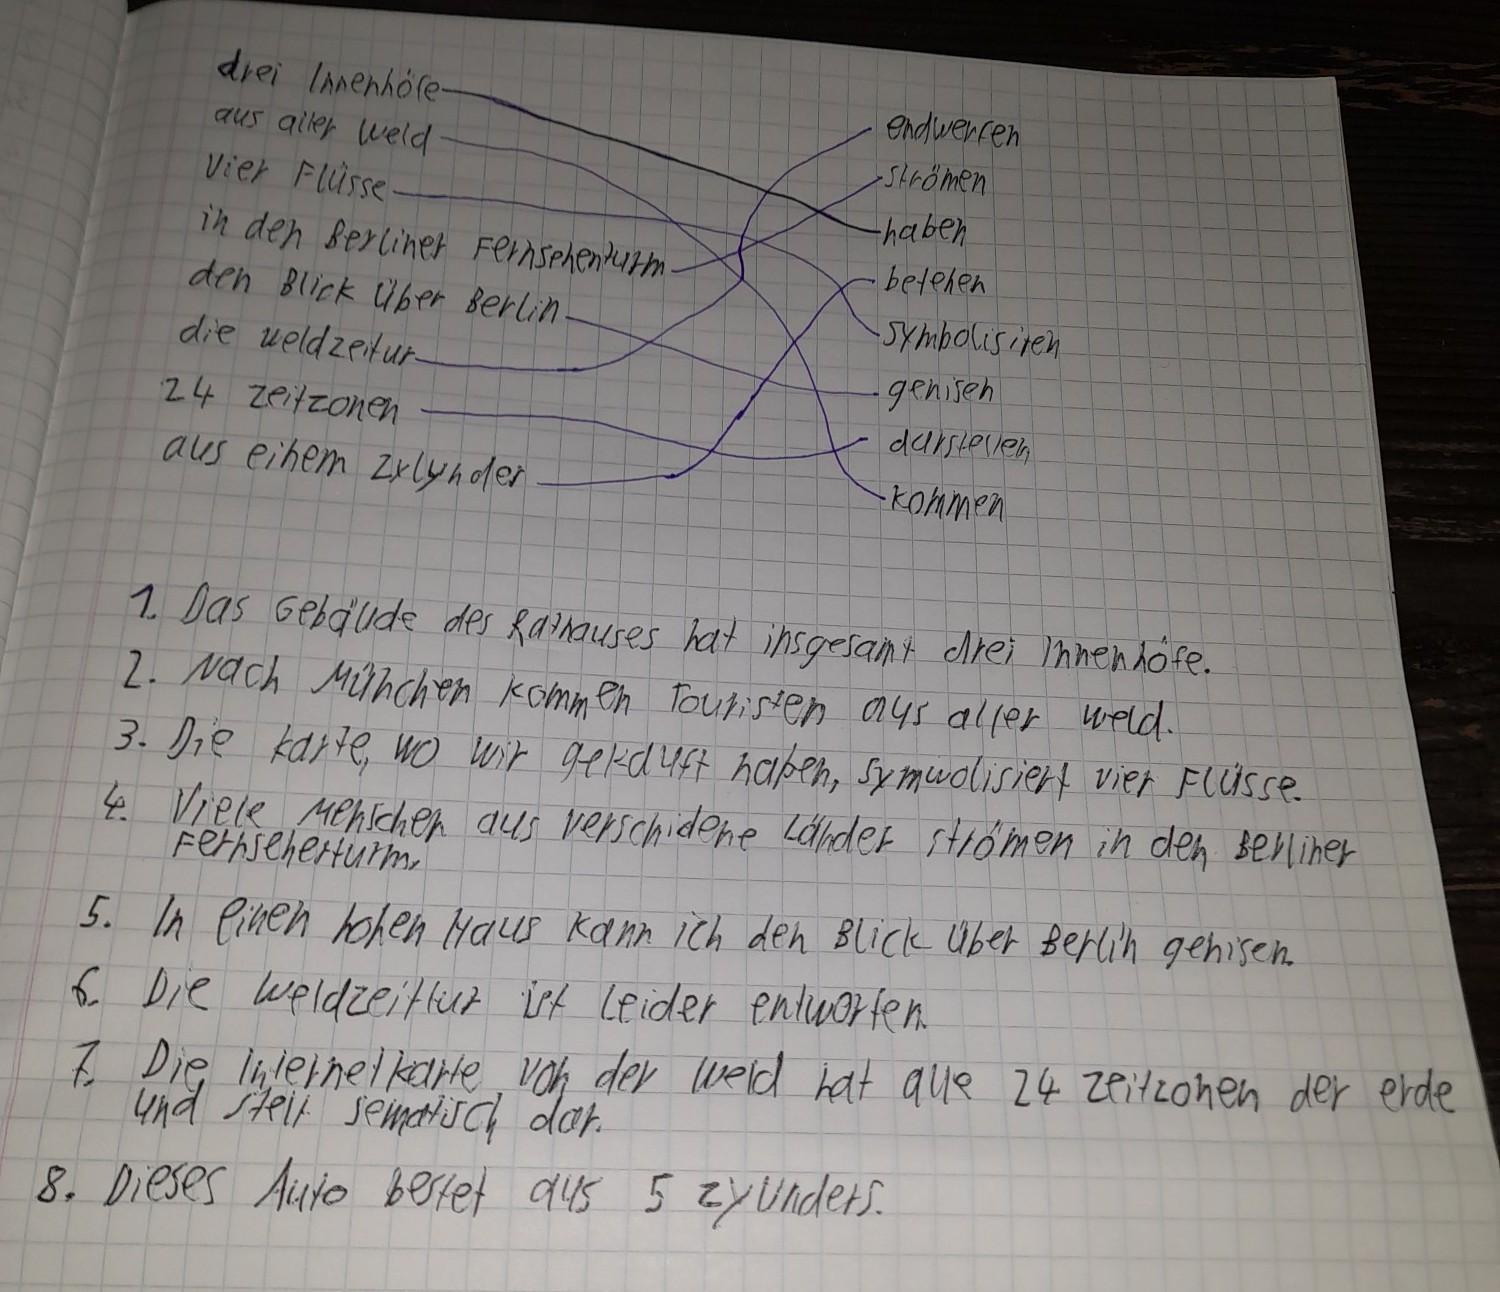 drei Innenhöfe
aus aller weld
vier Flüsse
in den Berliner Fernsehenturm
den Blick über Berlin
die weldzeitur
24 zeitzonen
aus einem zylynder
endwerfen
strömen
haben
betehen
symbolisiren
genisen
darstellen
kommen
1. Das Gebäude des Rathauses hat insgesamt drei Innenhöfe.
2. Nach München kommen Touristen aus aller weld.
3. Die karte, wo wir gekauft haben, symwolisiert vier Flüsse.
4. Viele Menschen aus verschidene Länder strömen in den Berliner
Fernseherturm.
5. In einen hohen Haus kann ich den Blick über Berlin genisen.
6. Die weldzeittur ist leider entworfen.
7. Die internetkarte von der weld hat alle 24 zeitzonen der erde
und stelt sematisch dar.
8. Dieses Auto bestet aus 5 zylinders.